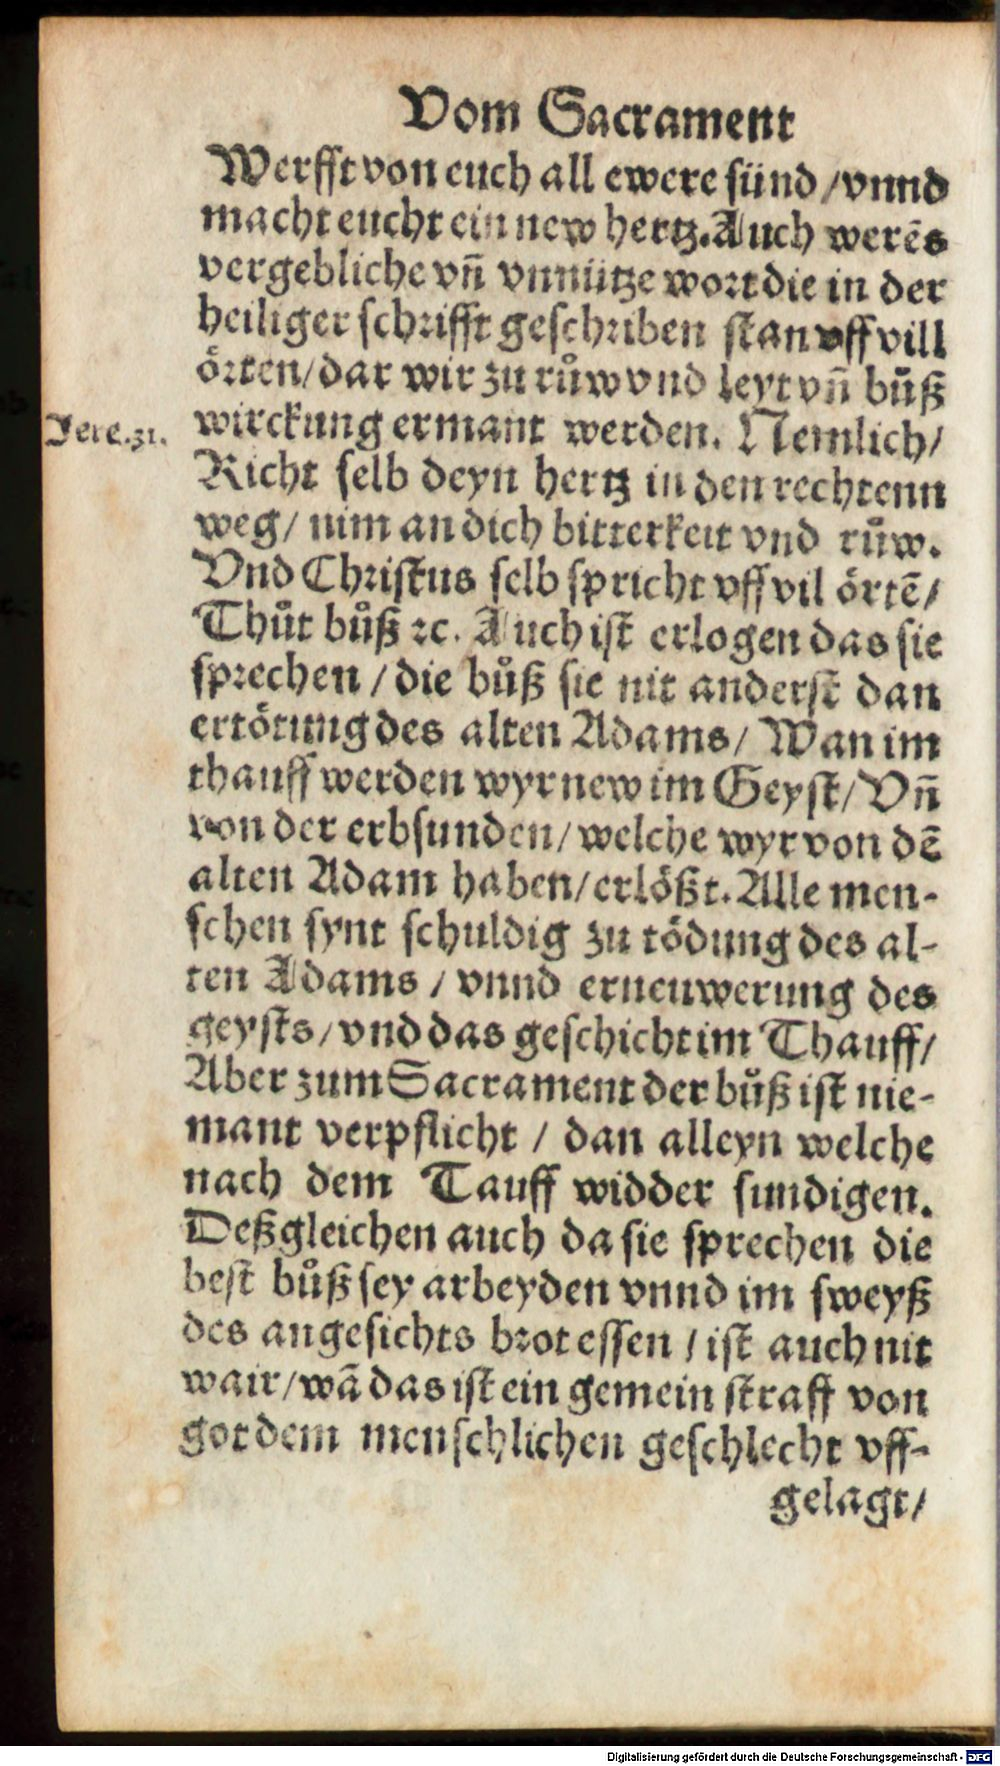 Vom Sacrament
Werfft von euch all ewere sünd / vnnd
macht eucht ein new hertz. Auch werēs
vergebliche vñ vnnütze wort die in der
heiliger schrifft geschriben stan vff vill
örten / dar wir zu růw vnd leyt vñ bůß
Jere.31. wirckung ermant werden. Nemlich /
Richt selb deyn hertz in den rechtenn
weg / nim an dich bitterkeit vnd růw.
Vnd Christus selb spricht vff vil örtē /
Thůt bůß ꝛc. Auch ist erlogen das sie
sprechen / die bůß sie nit anderst dan
ertötung des alten Adams / Wan im
thauff werden wyr new im Geyst / Vñ
von der erbsunden / welche wyr von dē
alten Adam haben / erlößt. Alle men-
schen synt schuldig zu tödung des al-
ten Adams / vnnd erneuwerung des
geysts / vnd das geschicht im Thauff /
Aber zum Sacrament der bůß ist nie-
mant verpflicht / dan alleyn welche
nach dem Tauff widder sundigen.
Deßgleichen auch da sie sprechen die
best bůß sey arbeyden vnnd im sweyß
des angesichts brot essen / ist auch nit
wair / wā das ist ein gemein straff von
got dem menschlichen geschlecht vff-
gelagt /
Digitalisierung gefördert durch die Deutsche Forschungsgemeinschaft - DFG